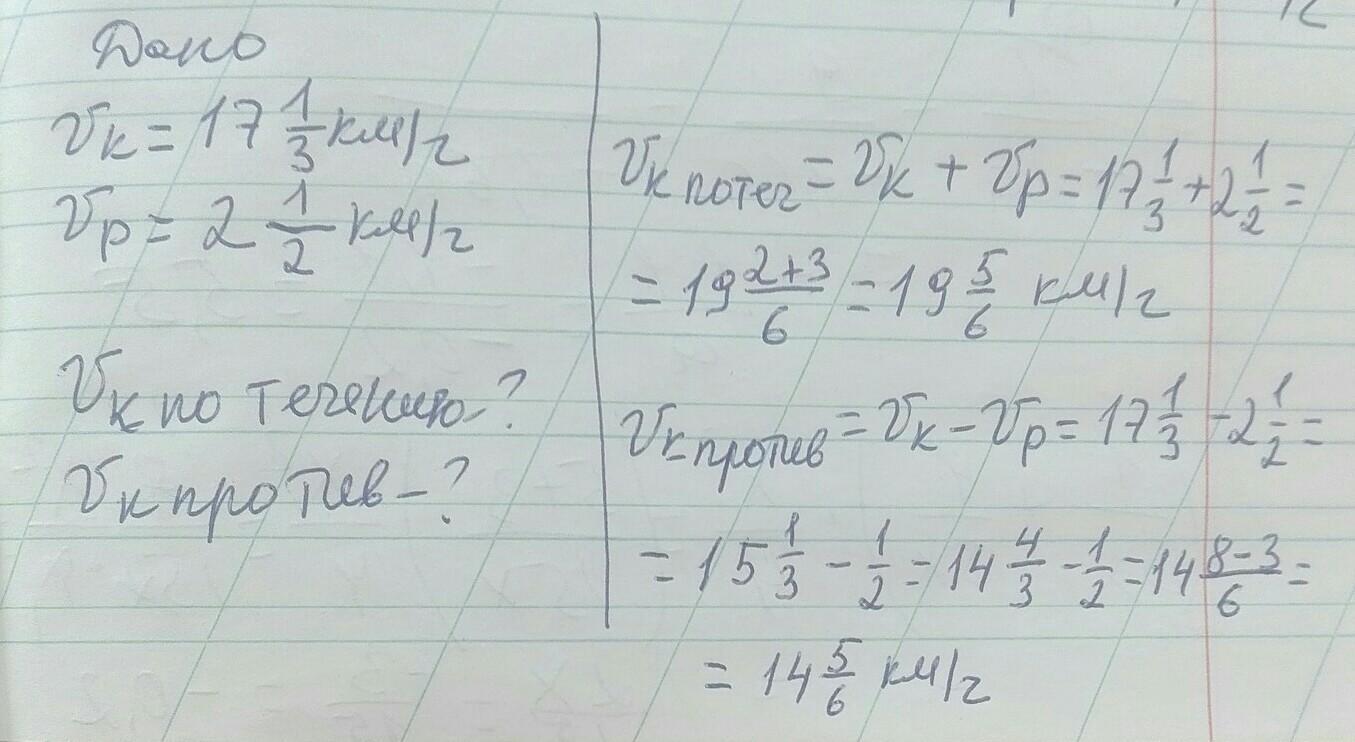 Дано
Vк = 17 1/3 км/ч
Vр = 2 1/2 км/ч
Vк по течению - ?
Vк против - ?
Vк по теч = Vк + Vр = 17 1/3 + 2 1/2 =
= 19 (2+3)/6 = 19 5/6 км/ч
Vк против = Vк - Vр = 17 1/3 - 2 1/2 =
= 15 1/3 - 1/2 = 14 4/3 - 1/2 = 14 (8-3)/6 =
= 14 5/6 км/ч